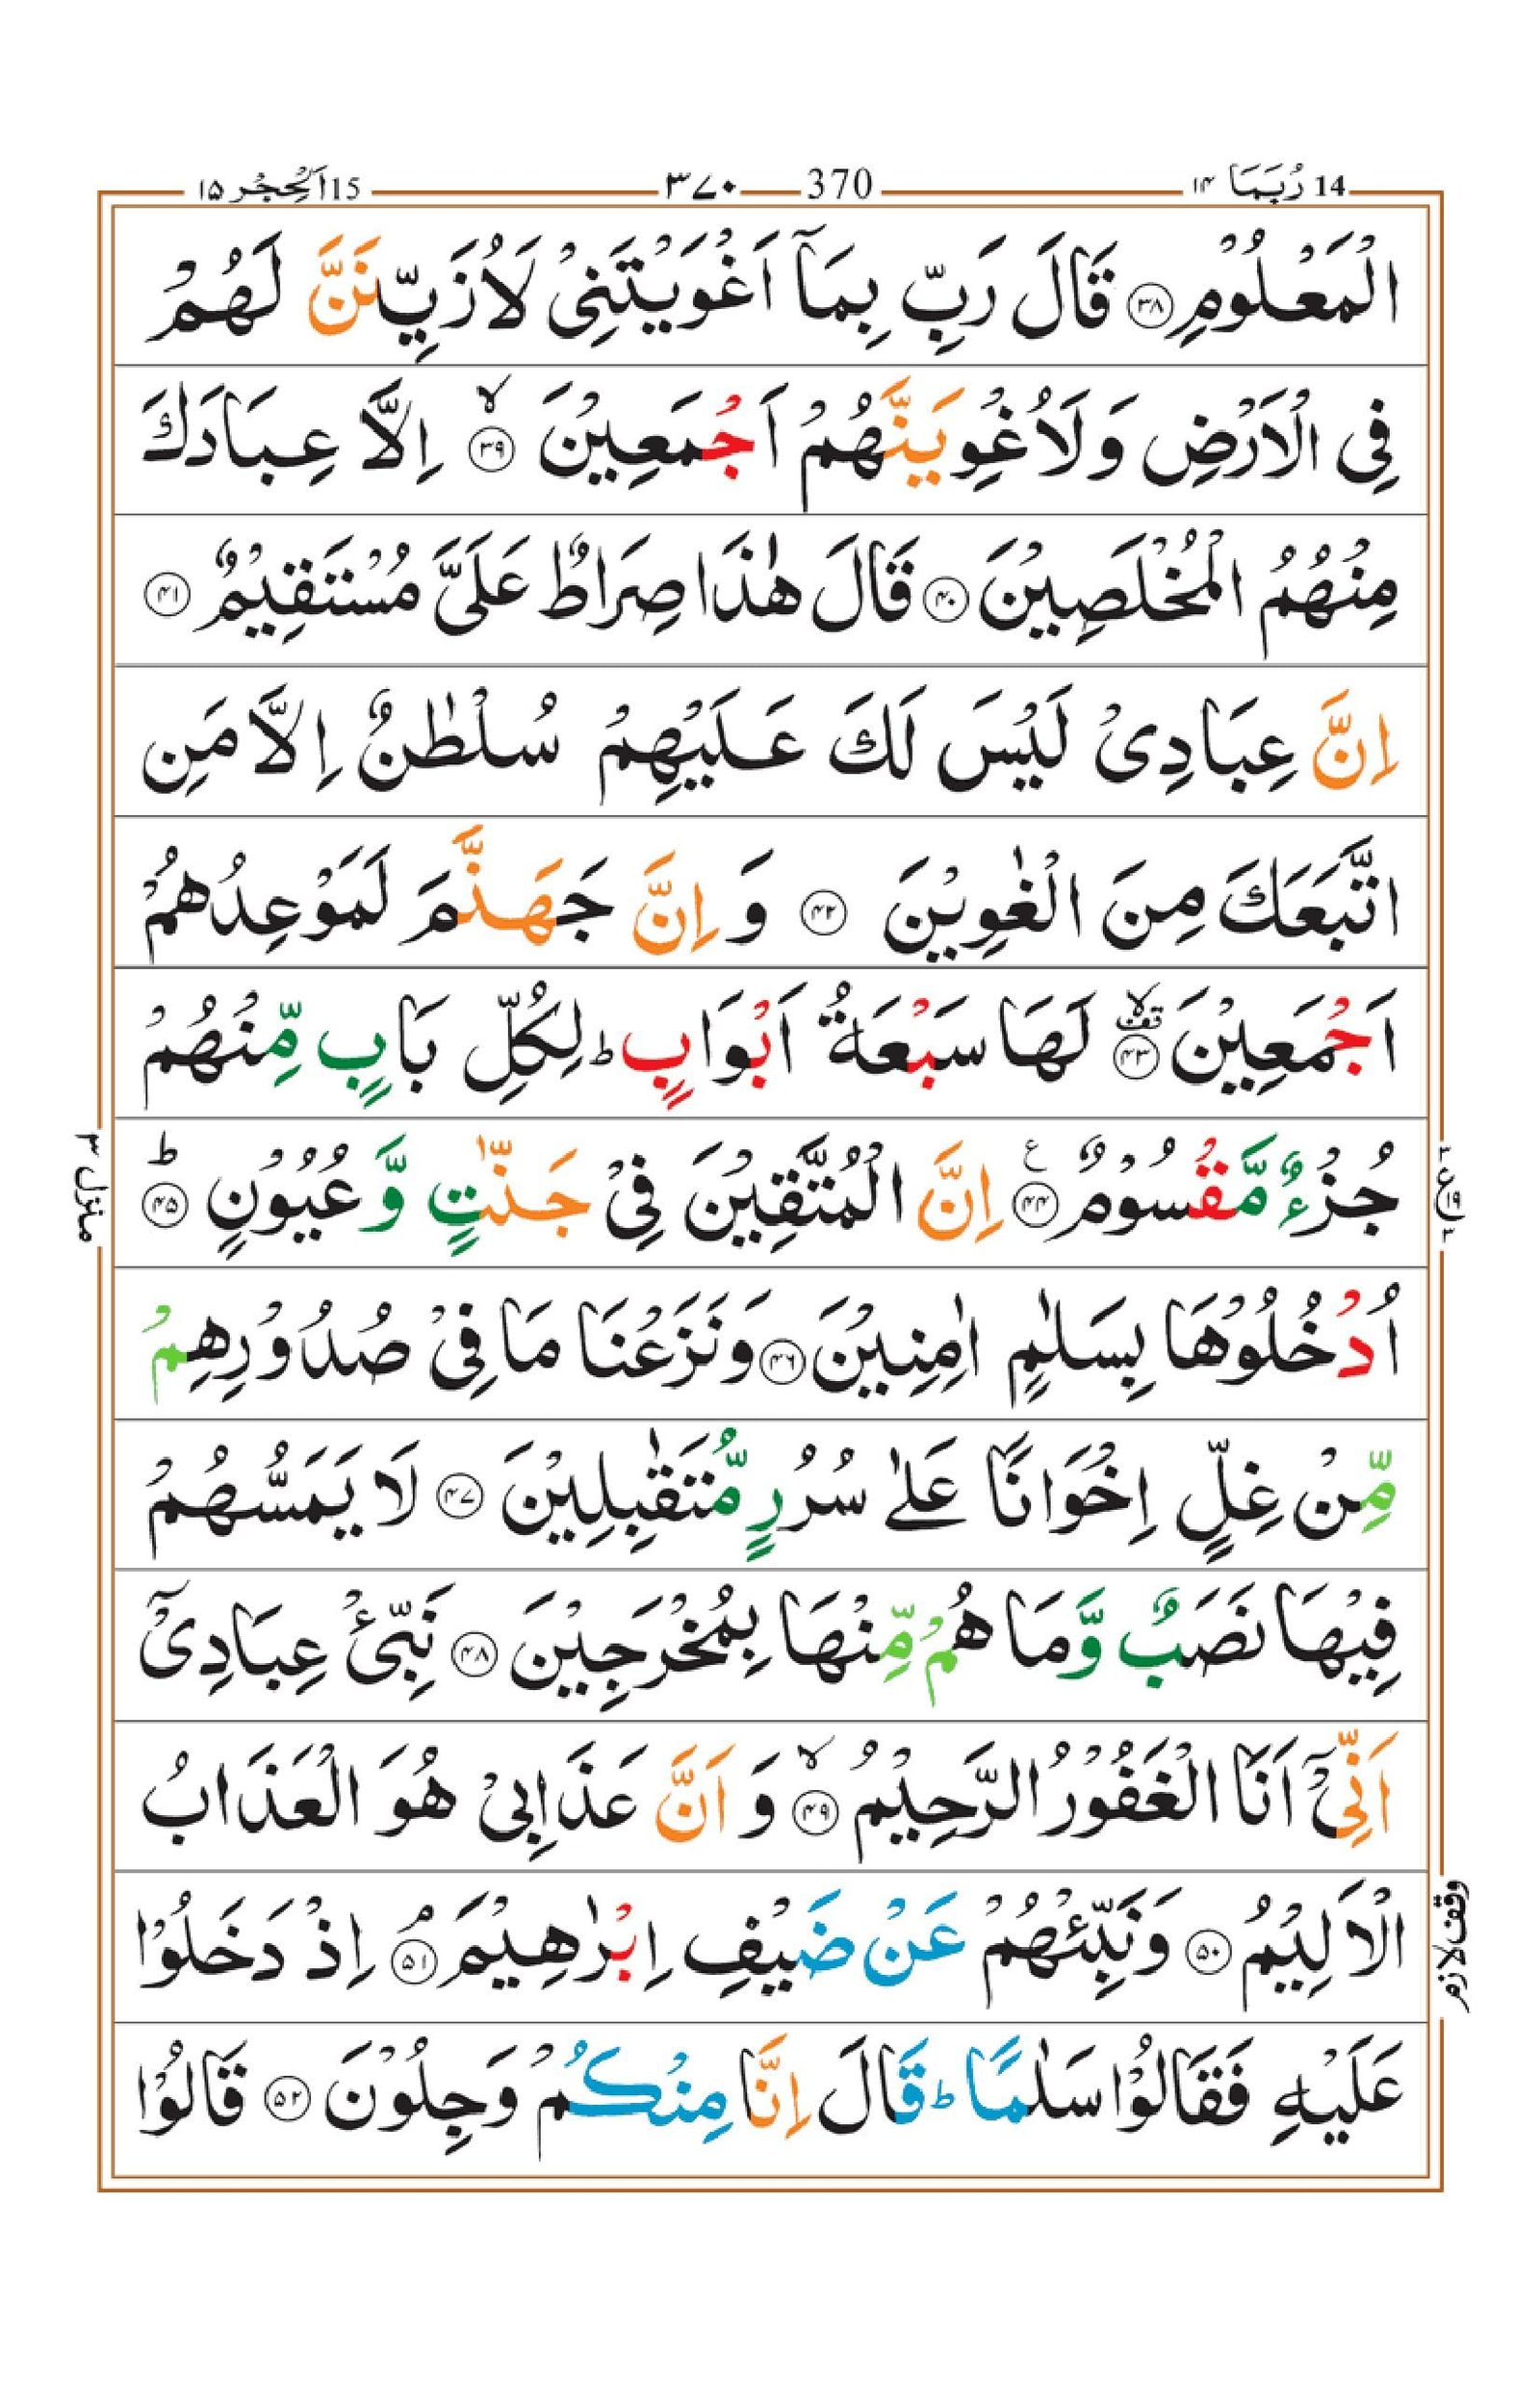 14 رُبَمَا ۱۴ 370 ۳۷۰ 15 اَلْحِجْر ۱۵
الْمَعْلُوْمِ ﴿۳۸﴾ قَالَ رَبِّ بِمَاۤ اَغْوَيْتَنِیْ لَاُزَيِّنَنَّ لَهُمْ
فِی الْاَرْضِ وَلَاُغْوِيَنَّهُمْ اَجْمَعِيْنَ ۙ﴿۳۹﴾ اِلَّا عِبَادَكَ
مِنْهُمُ الْمُخْلَصِيْنَ ﴿۴۰﴾ قَالَ هٰذَا صِرَاطٌ عَلَیَّ مُسْتَقِيْمٌ ﴿۴۱﴾
اِنَّ عِبَادِیْ لَيْسَ لَكَ عَلَيْهِمْ سُلْطٰنٌ اِلَّا مَنِ
اتَّبَعَكَ مِنَ الْغٰوِيْنَ ﴿۴۲﴾ وَ اِنَّ جَهَنَّمَ لَمَوْعِدُهُمْ
اَجْمَعِيْنَ ۙ قف ﴿۴۳﴾ لَهَا سَبْعَةُ اَبْوَابٍ ؕ لِكُلِّ بَابٍ مِّنْهُمْ
جُزْءٌ مَّقْسُوْمٌ ع ﴿۴۴﴾ اِنَّ الْمُتَّقِيْنَ فِیْ جَنّٰتٍ وَّعُيُوْنٍ ؕ﴿۴۵﴾
اُدْخُلُوْهَا بِسَلٰمٍ اٰمِنِيْنَ ﴿۴۶﴾ وَنَزَعْنَا مَا فِیْ صُدُوْرِهِمْ
مِّنْ غِلٍّ اِخْوَانًا عَلٰی سُرُرٍ مُّتَقٰبِلِيْنَ ﴿۴۷﴾ لَا يَمَسُّهُمْ
فِيْهَا نَصَبٌ وَّمَا هُمْ مِّنْهَا بِمُخْرَجِيْنَ ﴿۴۸﴾ نَبِّئْ عِبَادِیْۤ
اَنِّیْۤ اَنَا الْغَفُوْرُ الرَّحِيْمُ ۙ﴿۴۹﴾ وَ اَنَّ عَذَابِیْ هُوَ الْعَذَابُ
الْاَلِيْمُ ﴿۵۰﴾ وَنَبِّئْهُمْ عَنْ ضَيْفِ اِبْرٰهِيْمَ ۘ﴿۵۱﴾ اِذْ دَخَلُوْا
عَلَيْهِ فَقَالُوْا سَلٰمًا ؕ قَالَ اِنَّا مِنْكُمْ وَجِلُوْنَ ﴿۵۲﴾ قَالُوْا
منزل ۳
وقف لازم